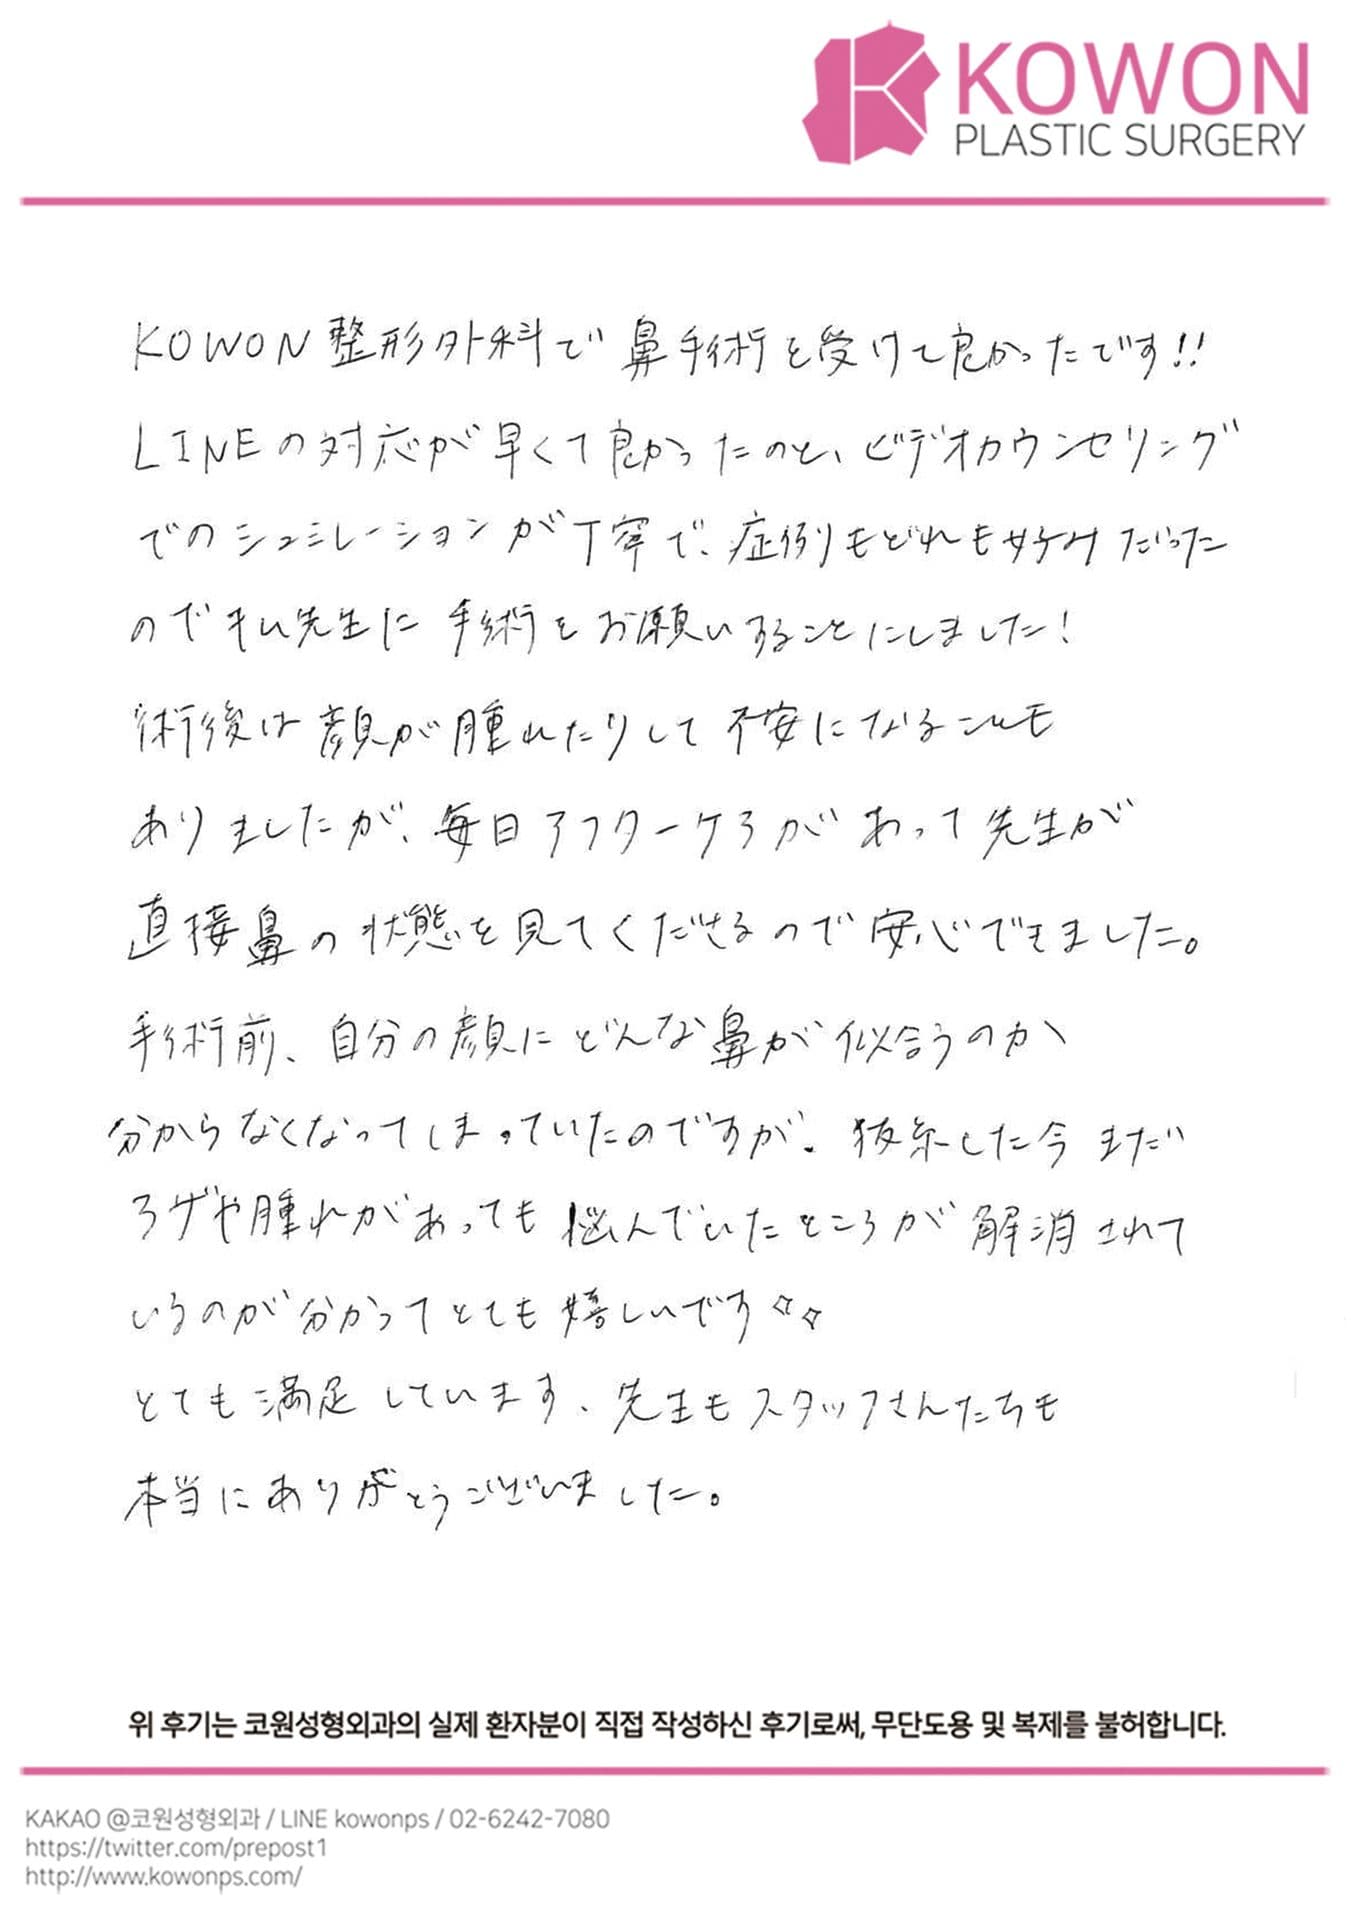 KOWON
PLASTIC SURGERY
KOWON整形外科で鼻手術を受けて良かったです!!
LINEの対応が早くて良かったのと、ビデオカウンセリング
でのシュミレーションが丁寧で、症例もどれも好みだった
のでキム先生に手術をお願いすることにしました!
術後は顔が腫れたりして不安になることも
ありましたが、毎日アフターケアがあって先生が
直接鼻の状態を見てくださるので安心できました。
手術前、自分の顔にどんな鼻が似合うのか
分からなくなってしまっていたのですが、抜糸した今まだ
アザや腫れがあっても悩んでいたところが解消されて
いるのが分かってとても嬉しいです✧✧
とても満足しています、先生もスタッフさんたちも
本当にありがとうございました。
위 후기는 코원성형외과의 실제 환자분이 직접 작성하신 후기로써, 무단도용 및 복제를 불허합니다.
KAKAO @코원성형외과 / LINE kowonps / 02-6242-7080
https://twitter.com/prepost1
http://www.kowonps.com/